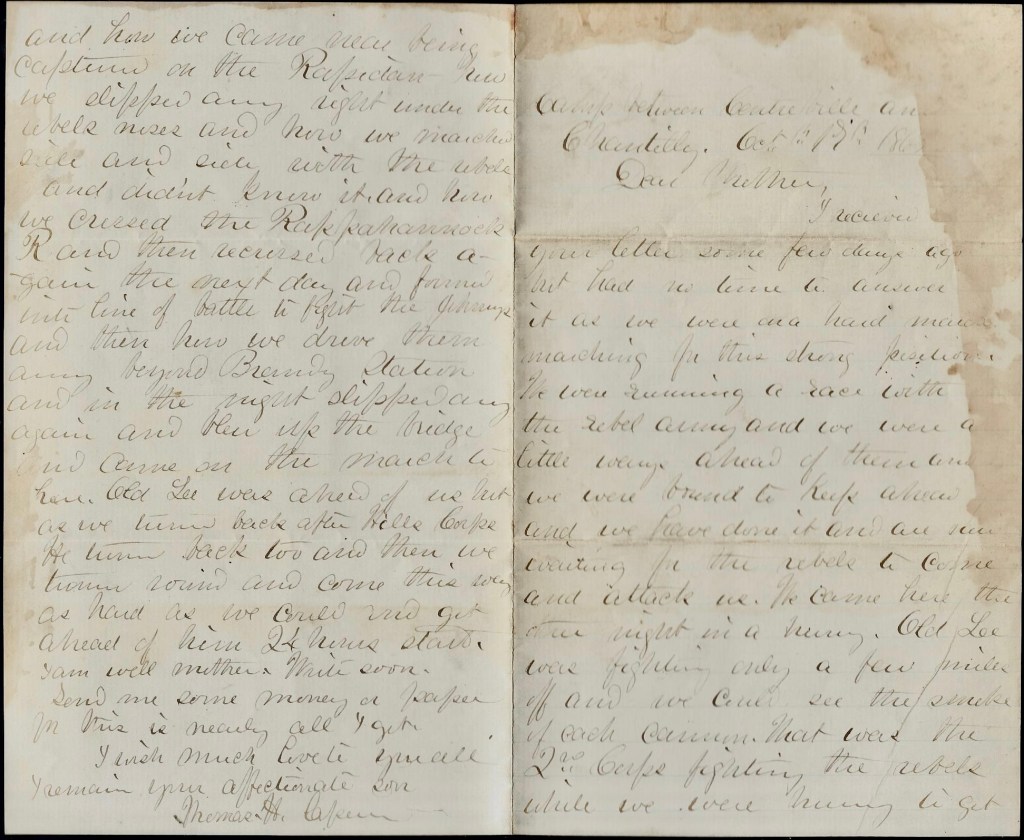 Camp between Centreville an
Chantilly. Oct 17th 186
Dear Mother,
I recieved
your letter some few days ago
but had no time to answer
it as we were on a hard march
marching for this strong position.
We were running a race with
the rebel army and we were a
little ways ahead of them and
we were bound to keep ahead
and we have done it and are now
waiting for the rebels to come
and attack us. We came here the
other night in a hurry. Old Lee
was fighting only a few miles
off and we could see the smoke
of each cannon. That was the
2nd Corps fighting the rebels
while we were hurry to get
and how we came near being
captured on the Rapidan how
we slipped away right under the
rebels noses and how we marched
side and side with the rebels
and didn't know it. and how
we crossed the Rappahannock
R and then recrossed back a-
gain the next day and formed
into line of battle to fight the Johnnys
and then how we drove them
away beyond Brandy Station
and in the night slipped away
again and blew up the bridge
and came on the march to
here. Old Lee was ahead of us but
as we turned back after Hills Corps
He turned back too and then we
turned round and come this way
as hard as we could and got
ahead of him 24 hours start.
I am well mother. Write soon.
Send me some money or paper
for this is nearly all I got.
I wish much love to you all
I remain your affectionate son
Thomas H.